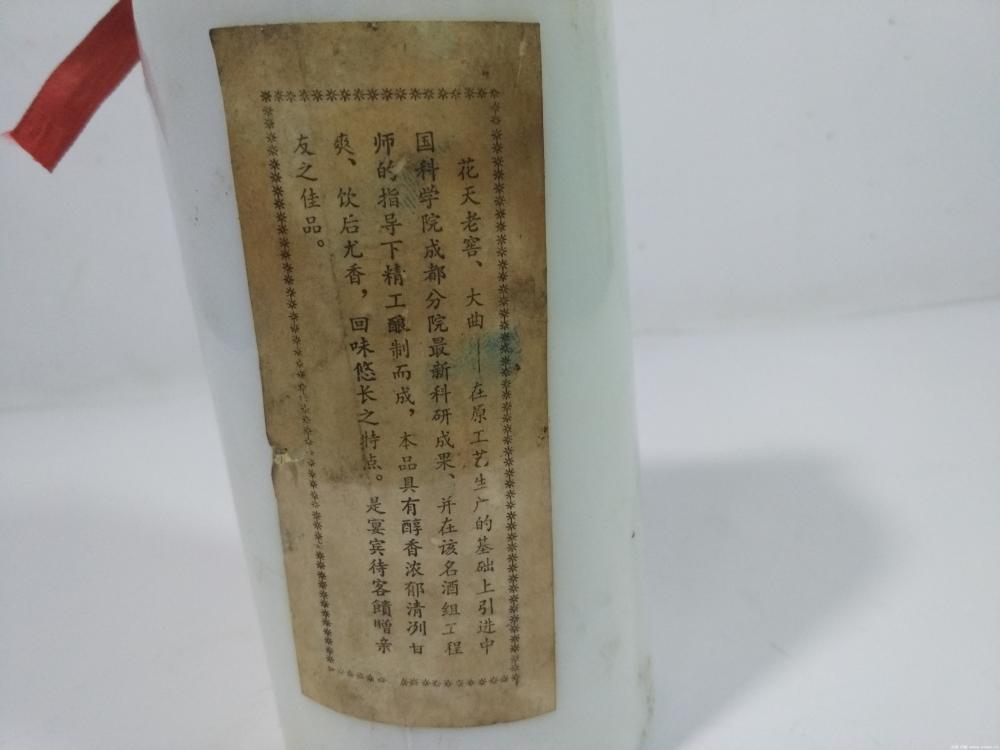 花天老窖、大曲——在原工艺生广的基础上引进中
国科学院成都分院最新科研成果、并在该名酒组工程
师的指导下精工酿制而成，本品具有醇香浓郁清冽甘
爽、饮后尤香，回味悠长之特点。是宴宾待客饋赠亲
友之佳品。